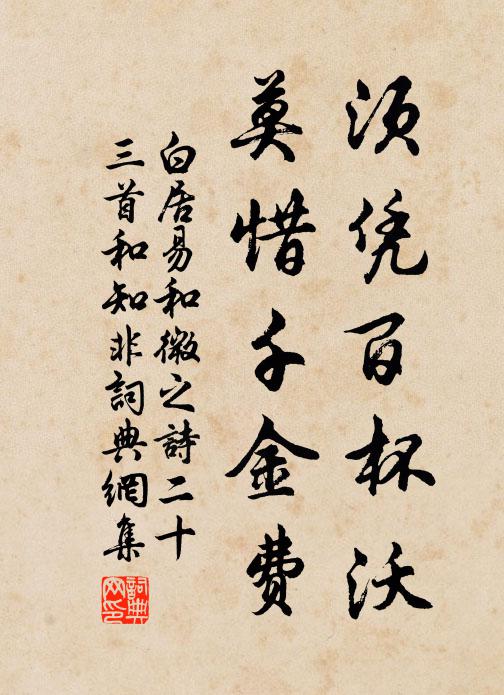 须凭百杯沃
莫惜千金费
白居易和微之詩二十
三首和知非詞典網集
詞典
网印